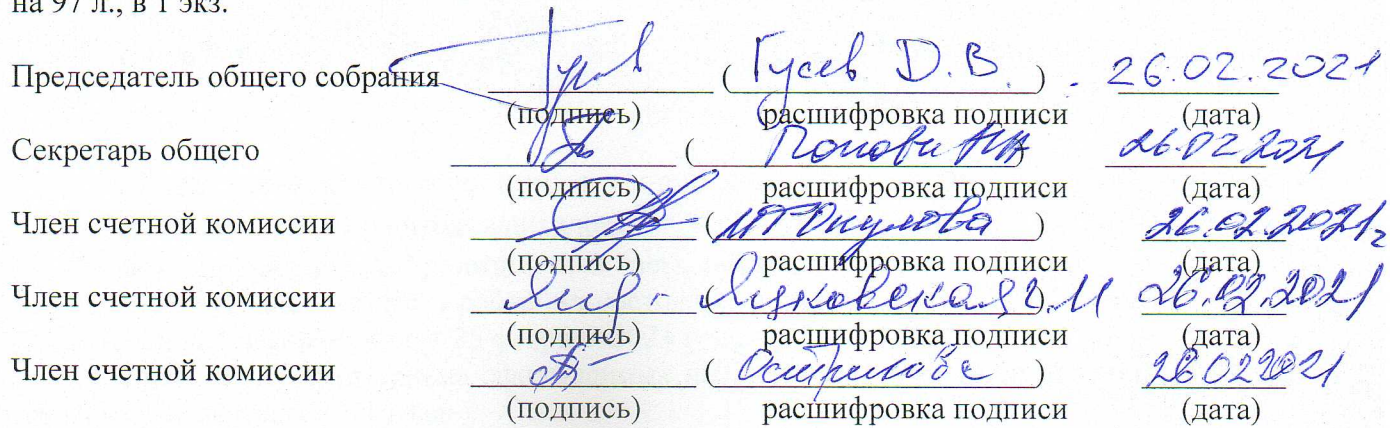 на 97 л., в 1 экз.
Председатель общего собрания (Гусев Д.В.) 26.02.2021
(подпись) расшифровка подписи (дата)
Секретарь общего ( ) 26.02.2021
(подпись) расшифровка подписи (дата)
Член счетной комиссии (Окулова) 26.02.2021г
(подпись) расшифровка подписи (дата)
Член счетной комиссии 26.02.2021
(подпись) расшифровка подписи (дата)
Член счетной комиссии ( ) 26022021
(подпись) расшифровка подписи (дата)